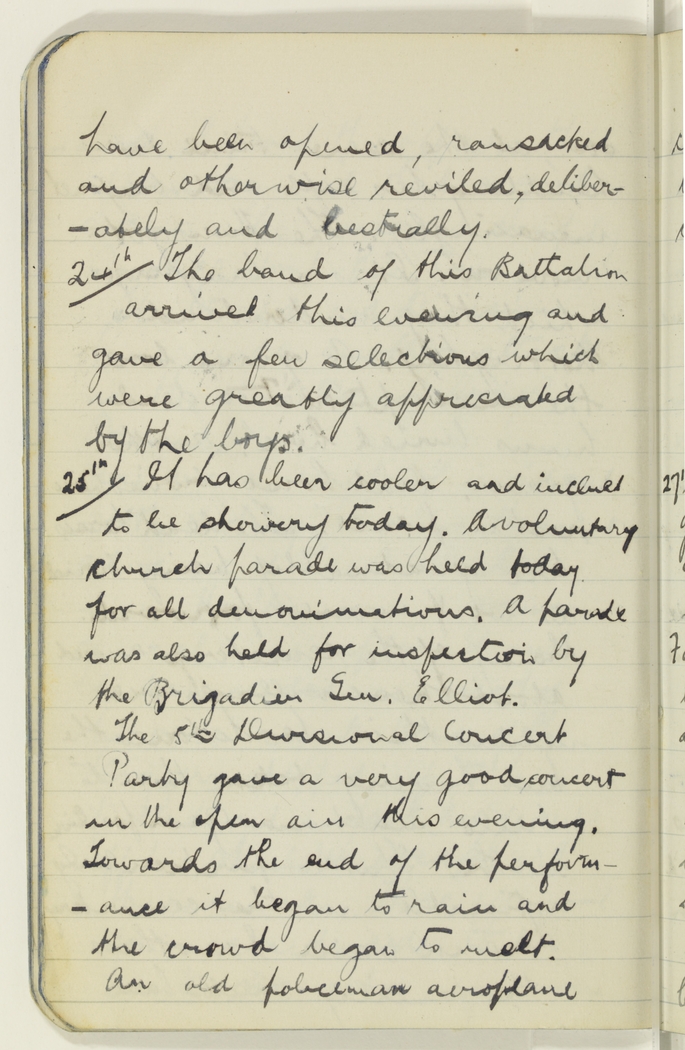 have been opened, ransacked
and otherwise reviled, deliber-
-ately and bestially.
24th The band of this Battalion
arrived this evening and
gave a few selections which
were greatly appreciated
by the boys.
25th It has been cooler and inclined
to be showery today. A voluntary
church parade was held today
for all denominations. A parade
was also held for inspection by
the Brigadier Gen. Elliot.
The 5th Divisional Concert
Party gave a very good concert
in the open air this evening.
Towards the end of the perform-
-ance it began to rain and
the crowd began to melt.
An old policeman aeroplane
27